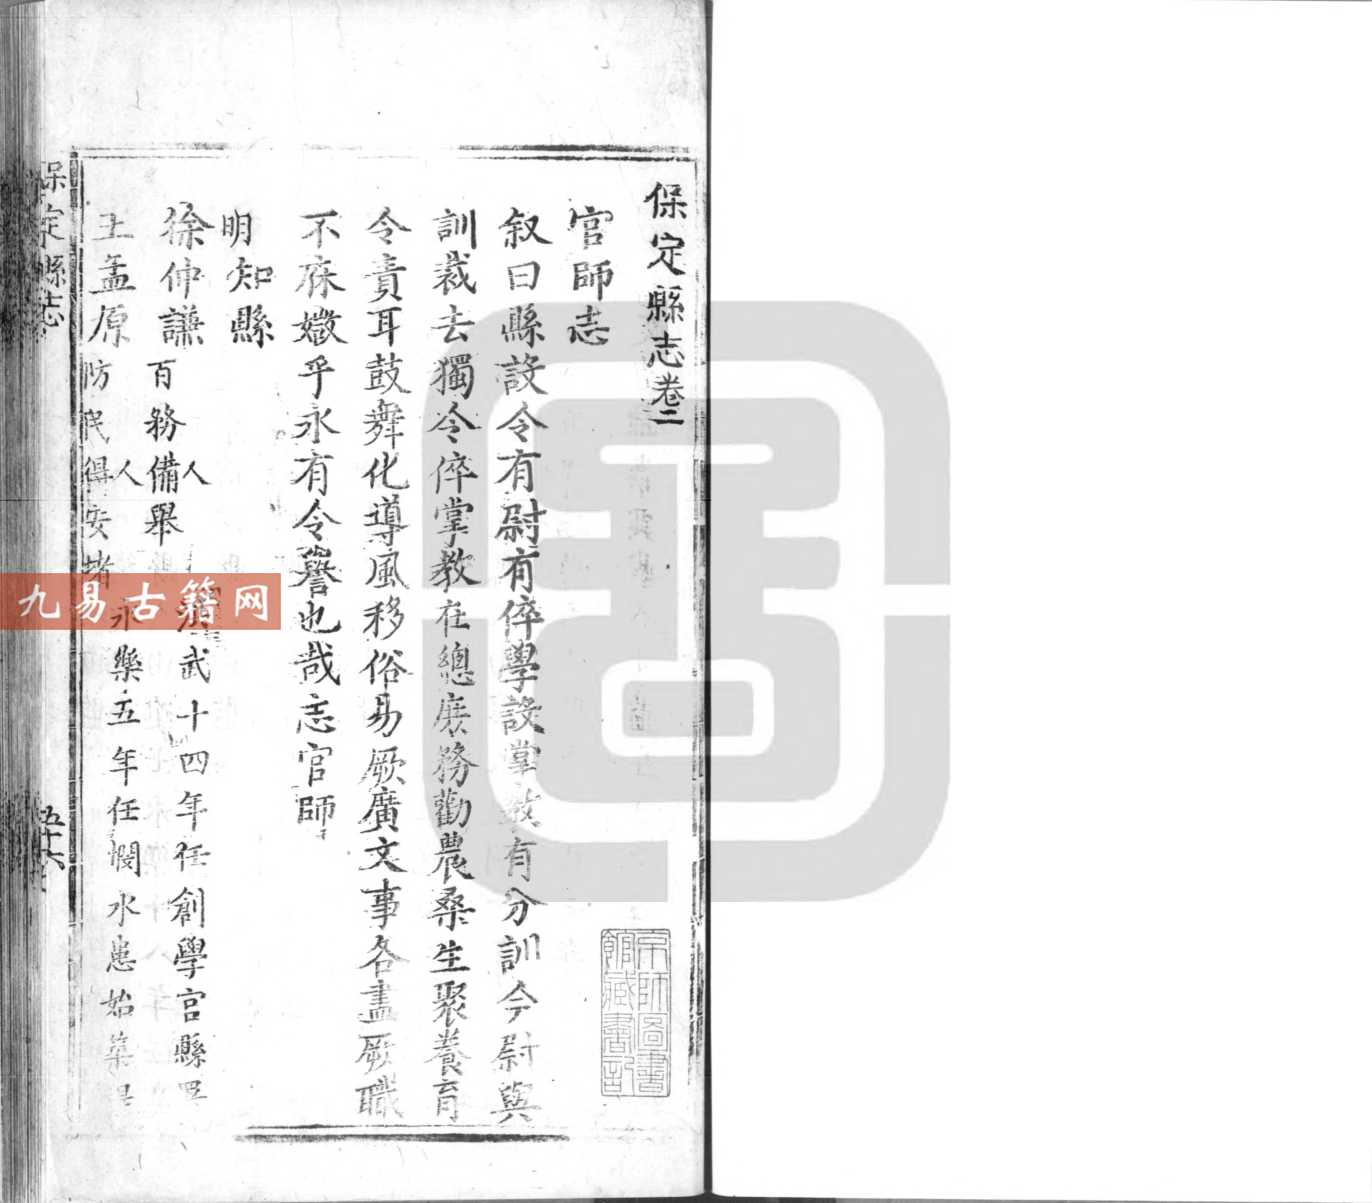 保定縣志卷二
官師志
叙曰縣設令有尉有倅學設掌教有分訓今尉與
訓裁去獨令倅掌教在總庶務勸農桑生聚養育
令責耳鼓舞化導風移俗易厥廣文事各盡厥職
不庥媺乎永有令譽也哉志官師
明知縣
徐仲謙 人 武十四年任創學宮縣
百務備舉
王孟原 人 永樂五年任憫水患始築
防民得安堵
保定縣志
五十六
京師圖書
館藏書記
九易古籍网